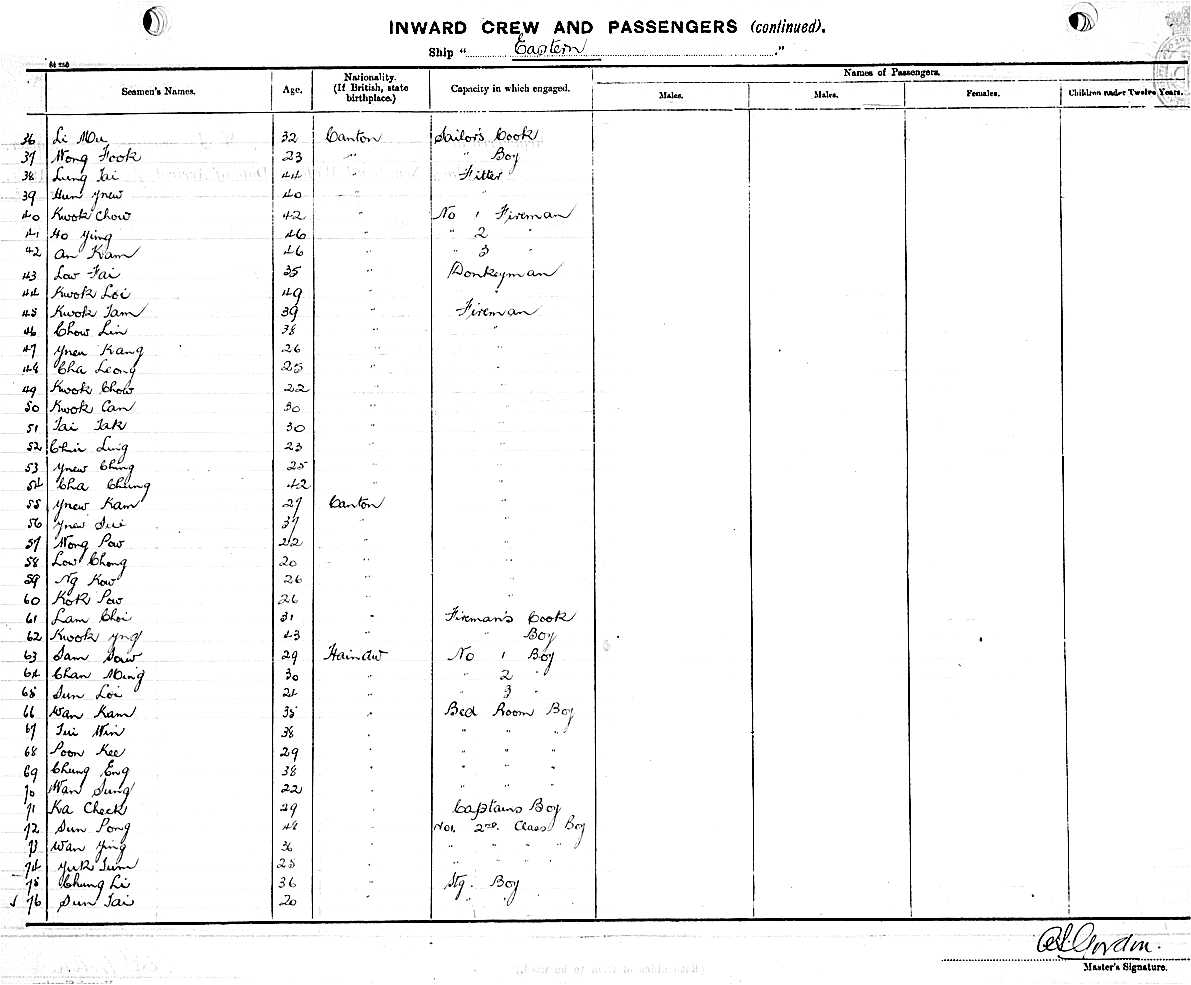 INWARD CREW AND PASSENGERS (continued).
Ship "Eastern"
Seamen's Names. Age. Nationality. (If British, state birthplace.) Capacity in which engaged. Names of Passengers.
Males. Males. Females. Children under Twelve Years.
36 Li Mu 32 Canton Sailor's Cook
37 Wong Fook 23 " " Boy
38 Lung Tai 44 " Fitter
39 Hun Ynew 40 " "
40 Kwok Chow 42 " No 1 Fireman
41 Ho Ying 46 " " 2 "
42 An Kam 46 " " 3 "
43 Low Fai 35 " Donkeyman
44 Kwok Loi 49 " "
45 Kwok Tam 39 " Fireman
46 Chow Lin 38 " "
47 Ynew Kang 26 " "
48 Cha Leong 25 " "
49 Kwok Chow 22 " "
50 Kwok Can 30 " "
51 Tai Tak 30 " "
52 Chin Ling 23 " "
53 Ynew Ching 25 " "
54 Cha Cheung 42 " "
55 Ynew Kam 27 Canton "
56 Ynew Sui 37 " "
57 Wong Pow 22 " "
58 Low Chong 20 " "
59 Ng Kow 26 " "
60 Kok Pow 26 " "
61 Lam Choi 31 " Fireman's Cook
62 Kwook Yng 43 " " Boy
63 Sam Saw 29 Hainaw No 1 Boy
64 Chan Ming 30 " " 2 "
65 Sun Loi 21 " " 3 "
66 Wan Kam 35 " Bed Room Boy
67 Tui Win 38 " " " "
68 Poon Kee 29 " " " "
69 Chung Eng 38 " " " "
70 Wan Sung 22 " " " "
71 Ka Check 29 " Captains Boy
72 Sun Pong 48 " No1. 2nd. Class Boy
73 Wan Ying 36 " " " " "
74 Yuk Tum 25 " " " "
75 Chung Li 36 " Stg. Boy
76 Sun Tai 20 " " "
Gordon.
Master's Signature.